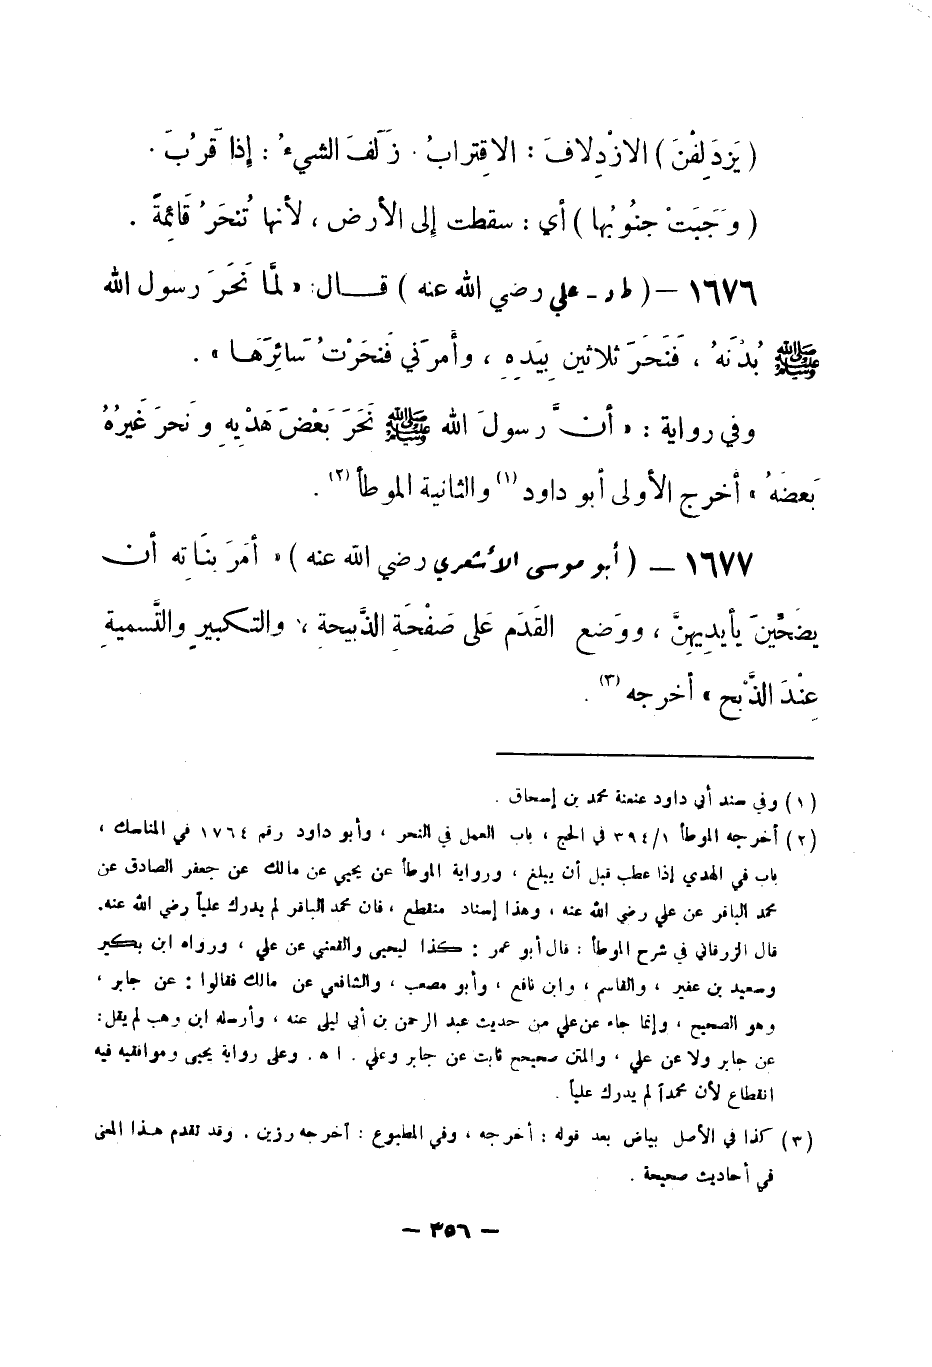 ( يَزدَلِفْنَ ) الازْدِلافَ : الاقِترابُ . زَلَفَ الشيءُ : إذا قَرُبَ .
( وَجَبَتْ جنُوبُها ) أي : سقطت إلى الأرض ، لأنها تُنحَرُ قَائِمَةً .
١٦٧٦ – ( ط د - علي رضي الله عنه ) قــال: « لمَّا نَحَرَ رسول الله
ﷺ بُدْنَهُ ، فَنَحَرَ ثلاثين بِيَدِهِ ، وأَمرَني فَنحَرْتُ سَائِرَهَـا » .
وفي رواية : « أنَّ رسولَ الله ﷺ نَحَرَ بَعْضَ هَدْيِهِ وَنحرَ غَيرُهُ
بَعضَهُ » أخرج الأولى أبو داود (١) والثانية الموطأ (٢) .
١٦٧٧ – ( أبو موسى الأشعري رضي الله عنه ) « أمَرَ بنَاته أن
يضَحِّينَ بأيدِيهِنَّ ، ووَضع القَدَم عَلى صَفْحَةِ الذَّبيحة ، والتكبيرِ والتَّسمية
عِنْدَ الذَّبْحِ » أخرجه (٣) .
(١) وفي سند أبي داود عنعنة محمد بن إسحاق .
(٢) أخرجه الموطأ ٣٩٤/١ في الحج ، باب العمل في النحر ، وأبو داود رقم ١٧٦٤ في المناسك ،
باب في الهدي إذا عطب قبل أن يبلغ ، ورواية الموطأ عن يحيي عن مالك عن جعفر الصادق عن
محمد الباقر عن علي رضي الله عنه ، وهذا إسناد منقطع ، فان محمد الباقر لم يدرك علياً رضي الله عنه.
قال الزرقاني في شرح الموطأ : قال أبو عمر : كذا ليحيى والقعنبي عن علي ، ورواه ابن بكير
وسعيد بن عفير ، والقاسم ، وابن نافع ، وأبو مصعب ، والشافعي عن مالك فقالوا : عن جابر ،
وهو الصحيح ، وإنما جاء عن علي من حديث عبد الرحمن بن أبي ليلى عنه ، وأرسله ابن وهب لم يقل:
عن جابر ولا عن علي ، والمتن صحيح ثابت عن جابر وعلي . ا ه . وعلى رواية يحيى وموافقيه فيه
انقطاع لأن محمداً لم يدرك علياً .
(٣) كذا في الأصل بياض بعد قوله : أخرجه ، وفي المطبوع : أخرجه رزين . وقد تقدم هـذا المعنى
في أحاديث صحيحة .
– ٣٥٦ –